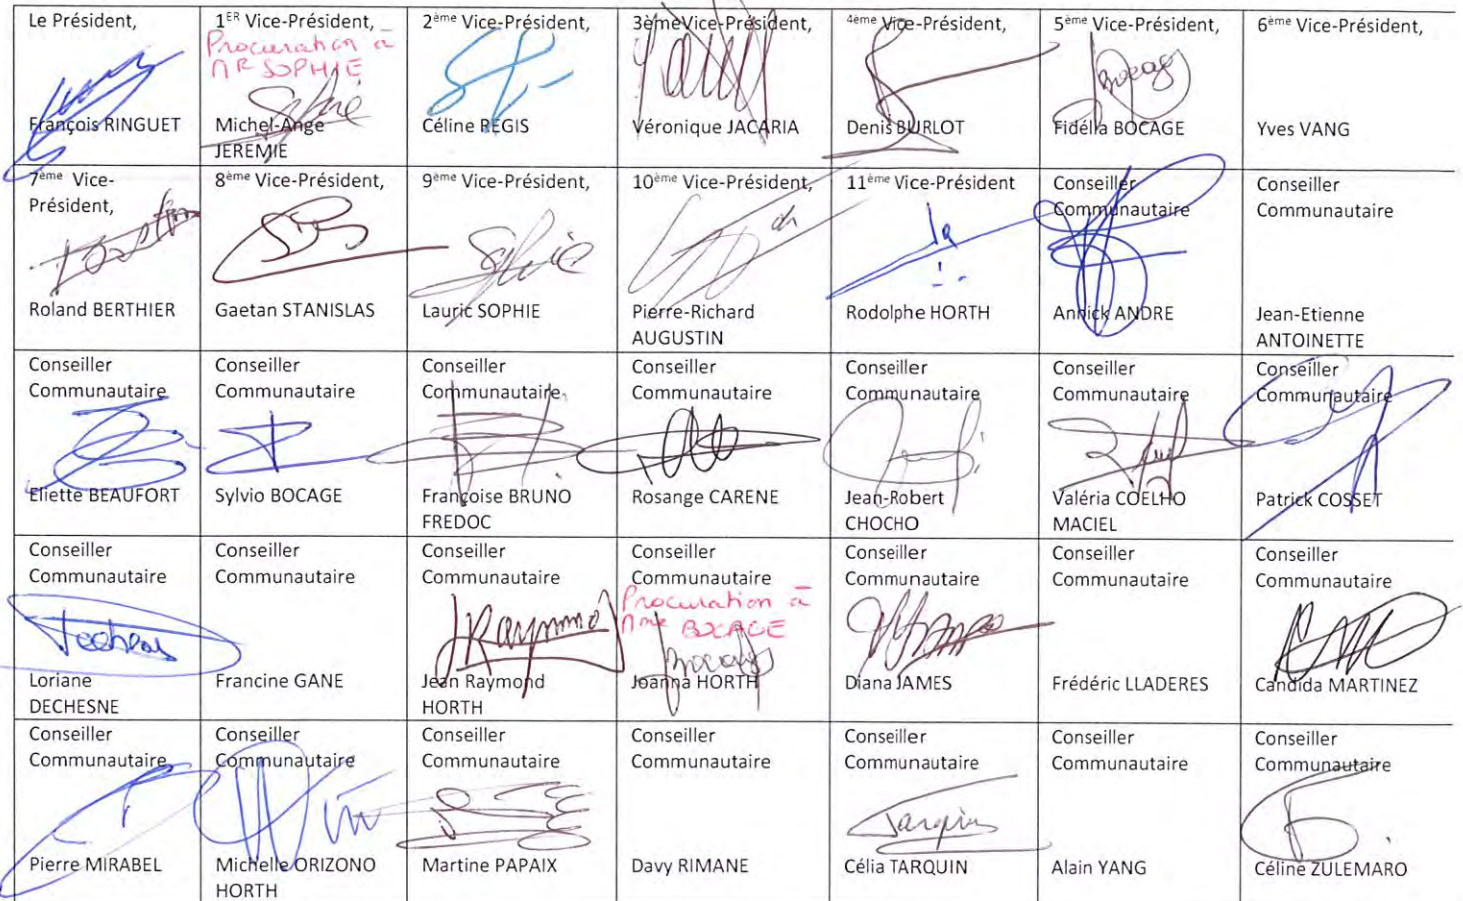 Le Président,
François RINGUET
1ER Vice-Président,
Procuration à
MR SOPHIE
Michel-Ange
JEREMIE
2ème Vice-Président,
Céline REGIS
3èmeVice-Président,
Véronique JACARIA
4ème Vice-Président,
Denis BURLOT
5ème Vice-Président,
Bocage
Fidélia BOCAGE
6ème Vice-Président,
Yves VANG
7ème Vice-
Président,
Roland BERTHIER
8ème Vice-Président,
Gaetan STANISLAS
9ème Vice-Président,
Lauric SOPHIE
10ème Vice-Président,
Pierre-Richard
AUGUSTIN
11ème Vice-Président
Rodolphe HORTH
Conseiller
Communautaire
Annick ANDRE
Conseiller
Communautaire
Jean-Etienne
ANTOINETTE
Conseiller
Communautaire
Eliette BEAUFORT
Conseiller
Communautaire
Sylvio BOCAGE
Conseiller
Communautaire
Françoise BRUNO
FREDOC
Conseiller
Communautaire
Rosange CARENE
Conseiller
Communautaire
Jean-Robert
CHOCHO
Conseiller
Communautaire
Valéria COELHO
MACIEL
Conseiller
Communautaire
Patrick COSSET
Conseiller
Communautaire
Loriane
DECHESNE
Conseiller
Communautaire
Francine GANE
Conseiller
Communautaire
JRaymond
Jean Raymond
HORTH
Conseiller
Communautaire
Procuration à
Mme BOCAGE
Bocage
Joanna HORTH
Conseiller
Communautaire
Diana JAMES
Conseiller
Communautaire
Frédéric LLADERES
Conseiller
Communautaire
Candida MARTINEZ
Conseiller
Communautaire
Pierre MIRABEL
Conseiller
Communautaire
Michelle ORIZONO
HORTH
Conseiller
Communautaire
Martine PAPAIX
Conseiller
Communautaire
Davy RIMANE
Conseiller
Communautaire
Tarquin
Célia TARQUIN
Conseiller
Communautaire
Alain YANG
Conseiller
Communautaire
Céline ZULEMARO